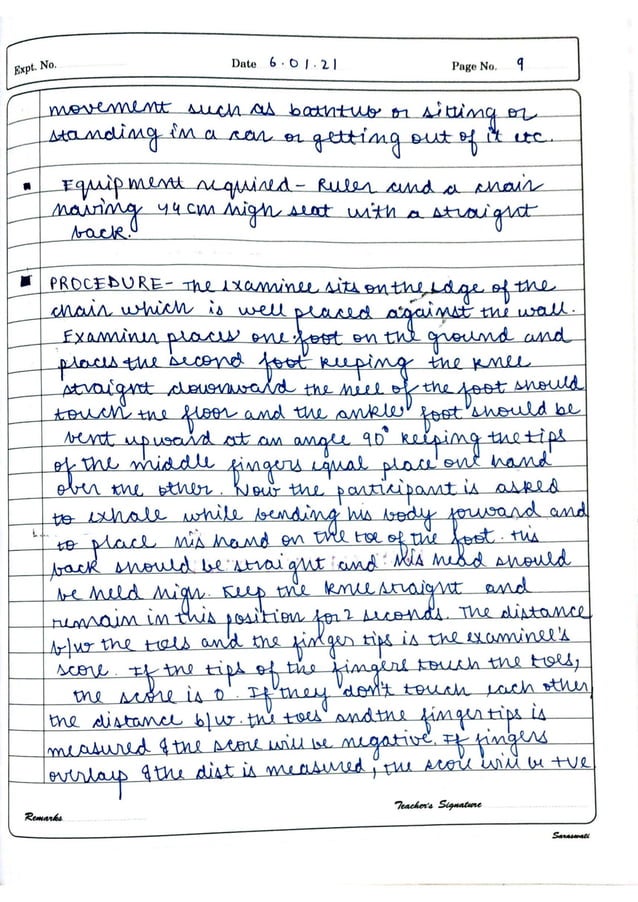 Expt. No.
Date 6.01.21
Page No. 9
movement such as bathtub or sitting or
standing in a car or getting out of it etc.
Equipment required - Ruler and a chair
having 44 cm high seat with a straight
back.
PROCEDURE - The examinee sits on the edge of the
chair which is well placed against the wall.
Examiner places one foot on the ground and
places the second foot keeping the knee
straight downward the heel of the foot should
touch the floor and the ankle foot should be
bent upward at an angle 90° keeping the tips
of the middle fingers equal place one hand
over the other. Now the participant is asked
to exhale while bending his body forward and
to place his hand on the toe of the foot. His
back should be straight and his head should
be held high. Keep the knee straight and
remain in this position for 2 seconds. The distance
b/w the toes and the finger tips is the examinee's
score. If the tips of the fingers touch the toes,
the score is 0. If they don't touch each other
the distance b/w. the toes and the finger tips is
measured & the score will be negative. If fingers
overlap & the dist is measured, the score will be +ve
Teacher's Signature
Remarks
Saraswati